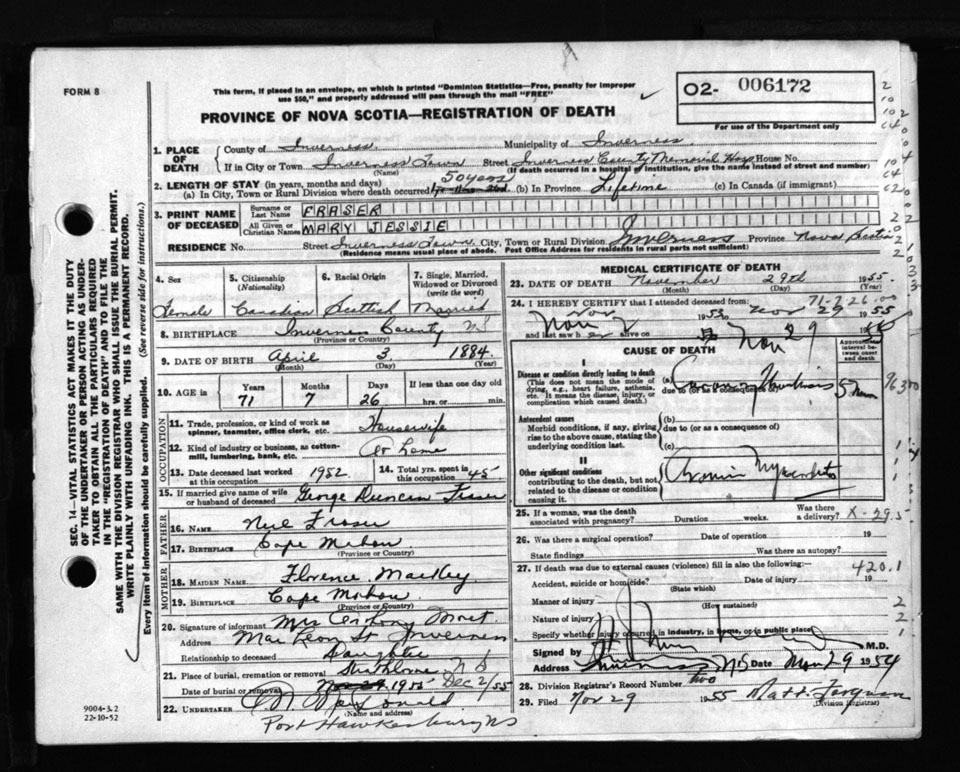 FORM 8
This form, if placed in an envelope, on which is printed "Dominion Statistics—Free, penalty for improper
use $50," and properly addressed will pass through the mail "FREE"
02- 006172
For use of the Department only
PROVINCE OF NOVA SCOTIA—REGISTRATION OF DEATH
1. PLACE OF DEATH
County of Inverness Municipality of Inverness
If in City or Town Inverness Town Street Inverness County Memorial Hosp House No.
(If death occurred in a hospital or institution, give its name instead of street and number)
2. LENGTH OF STAY (in years, months and days)
(a) In City, Town or Rural Division where death occurred 50 years (b) In Province Lifetime (c) In Canada (if immigrant)
3. PRINT NAME OF DECEASED
Surname or Last Name FRASER
All Given or Christian Names MARY JESSIE
RESIDENCE No. Street Inverness Town City, Town or Rural Division Inverness Province Nova Scotia
(Residence means usual place of abode. Post Office Address for residents in rural parts not sufficient)
4. Sex Female
5. Citizenship (Nationality) Canadian
6. Racial Origin Scottish
7. Single, Married, Widowed or Divorced (write the word) Married
8. BIRTHPLACE Inverness County NS
(Province or Country)
9. DATE OF BIRTH April 3 1884
(Month) (Day) (Year)
10. AGE in Years 71 Months 7 Days 26 If less than one day old hrs. or min.
OCCUPATION
11. Trade, profession, or kind of work as spinner, teamster, office clerk, etc. Housewife
12. Kind of industry or business, as cotton-mill, lumbering, bank, etc. At home
13. Date deceased last worked at this occupation 1952
14. Total yrs. spent in this occupation 45
15. If married give name of wife or husband of deceased George Duncan Fraser
FATHER
16. NAME Neil Fraser
17. BIRTHPLACE Cape Mabou
(Province or Country)
MOTHER
18. MAIDEN NAME Florence
19. BIRTHPLACE Cape Mabou
(Province or Country)
20. Signature of informant Mrs Anthony
Address St Inverness
Relationship to deceased Daughter
21. Place of burial, cremation or removal Strathlorne NS
Date of burial or removal Nov 29 1955 Dec 2/55
22. UNDERTAKER
(Name and address)
Port Hawkesbury NS
MEDICAL CERTIFICATE OF DEATH
23. DATE OF DEATH November 29th 1955
(Month) (Day) (Year)
24. I HEREBY CERTIFY that I attended deceased from: 71-7-26-00
Nov 1953 to Nov 29 1955
and last saw h er alive on Nov 29 19
CAUSE OF DEATH
Approximate interval between onset and death
I
Disease or condition directly leading to death
(This does not mean the mode of dying, e.g., heart failure, asthenia, etc. It means the disease, injury, or complication which caused death.)
(a) Coronary Thrombosis
due to (or as a consequence of)
Antecedent causes
Morbid conditions, if any, giving rise to the above cause, stating the underlying condition last.
(b)
due to (or as a consequence of)
(c)
II
Other significant conditions
contributing to the death, but not related to the disease or condition causing it.
Chronic Myocarditis
25. If a woman, was the death associated with pregnancy? Duration weeks. Was there a delivery?
26. Was there a surgical operation? Date of operation 19
State findings Was there an autopsy?
27. If death was due to external causes (violence) fill in also the following:— 420.1
Accident, suicide or homicide? Date of injury 19
(State which)
Manner of injury
(How sustained)
Nature of injury
Specify whether injury occurred in industry, in home, or in public place
Signed by M.D.
Address Inverness NS Date Nov 29 1954
28. Division Registrar's Record Number two
29. Filed Nov 29 1955 Matt. Ferguson
(Division Registrar)
SEC. 14—VITAL STATISTICS ACT MAKES IT THE DUTY
OF THE UNDERTAKER OR PERSON ACTING AS UNDER-
TAKER TO OBTAIN ALL THE PARTICULARS REQUIRED
IN THE "REGISTRATION OF DEATH" AND TO FILE THE
SAME WITH THE DIVISION REGISTRAR WHO SHALL ISSUE THE BURIAL PERMIT.
WRITE PLAINLY WITH UNFADING INK. THIS IS A PERMANENT RECORD.
Every item of information should be carefully supplied. (See reverse side for instructions.)
9004-3.2
22-10-52